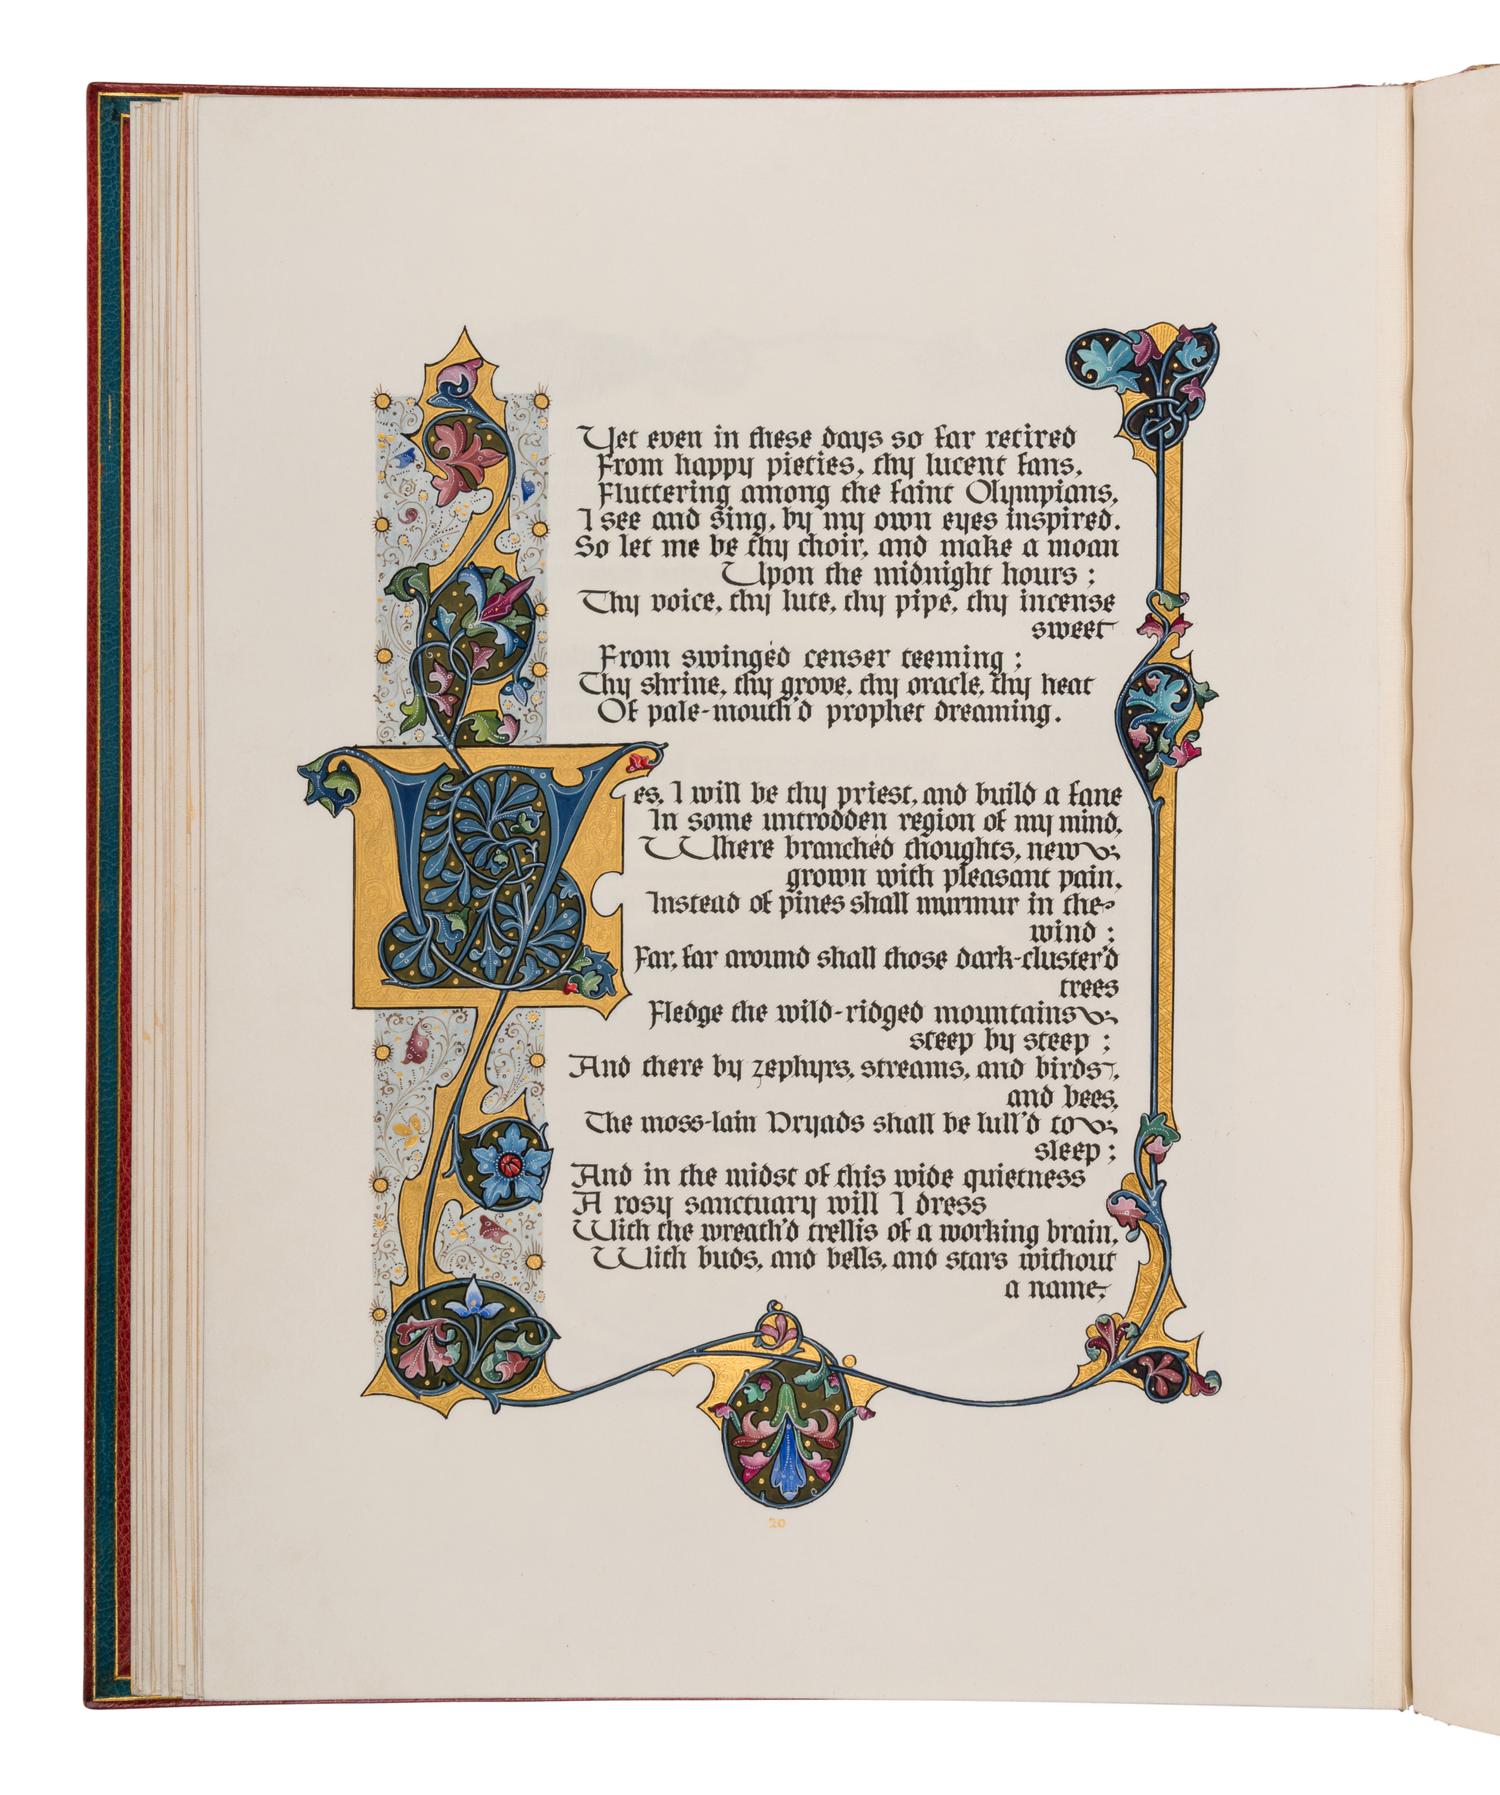 Yet even in these days so far retired
From happy pieties, thy lucent fans,
Fluttering among the faint Olympians,
I see and sing, by my own eyes inspired.
So let me be thy choir, and make a moan
Upon the midnight hours ;
Thy voice, thy lute, thy pipe, thy incense
sweet
From swingéd censer teeming ;
Thy shrine, thy grove, thy oracle, thy heat
Of pale-mouth'd prophet dreaming.
Yes, I will be thy priest, and build a fane
In some untrodden region of my mind,
Where branchéd thoughts, new
grown with pleasant pain,
Instead of pines shall murmur in the
wind ;
Far, far around shall those dark-cluster'd
trees
Fledge the wild-ridged mountains
steep by steep ;
And there by zephyrs, streams, and birds,
and bees,
The moss-lain Dryads shall be lull'd to
sleep ;
And in the midst of this wide quietness
A rosy sanctuary will I dress
With the wreath'd trellis of a working brain,
With buds, and bells, and stars without
a name,
20